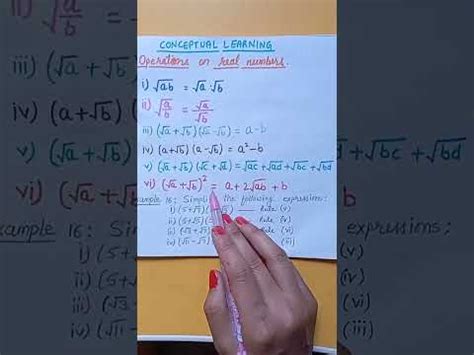 CONCEPTUAL LEARNING
Operations on real numbers.
i) √ab = √a .√b
ii) √a/b = √a/√b
iii) (√a + √b) (√a - √b) = a - b
iv) (a+√b) (a-√b) = a² - b
v) (√a + √b) (√c + √d) = √ac + √ad + √bc + √bd
vi) (√a + √b)² = a + 2√ab + b
Example 16: Simplify the following expressions:
i) (5+√7) Rule (v)
ii) (5+√5) Rule (iv)
(√3+√7) Rule (vi)
iv) (√11 - √7) (iii)